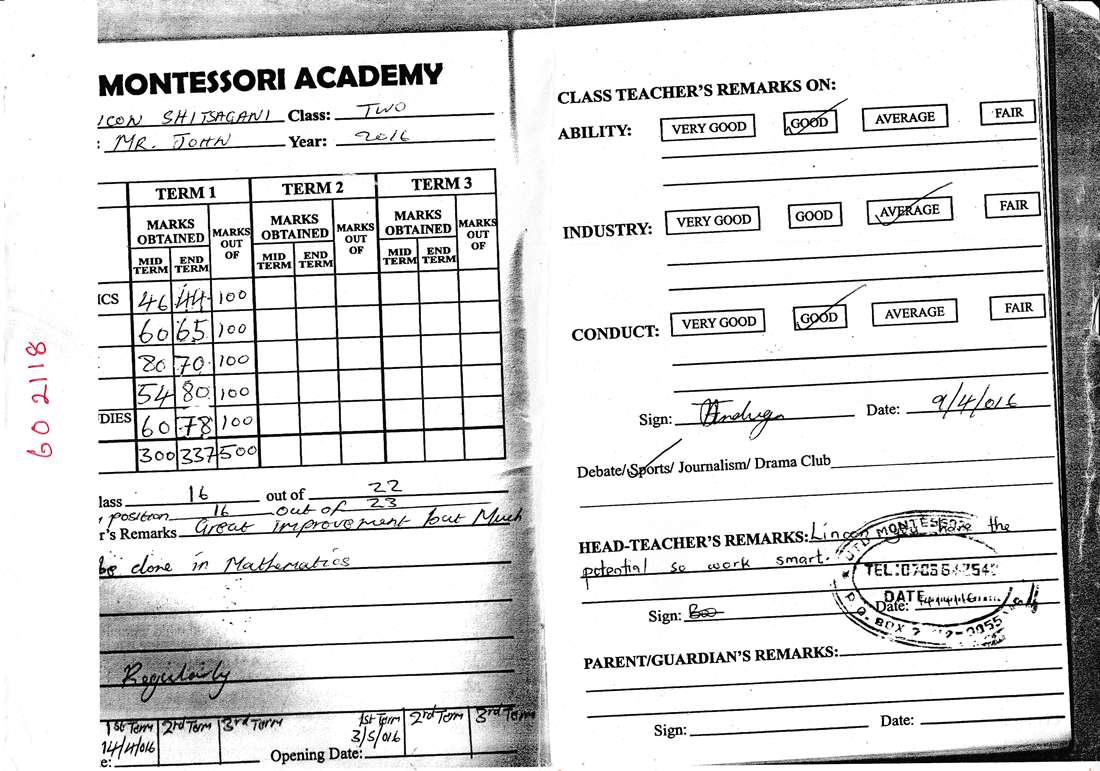 MONTESSORI ACADEMY
ICON SHITSAGANI Class: TWO
: MR. JOHN Year: 2016
TERM 1 TERM 2 TERM 3
MARKS OBTAINED MARKS OUT OF MARKS OBTAINED MARKS OUT OF MARKS OBTAINED MARKS OUT OF
MID TERM END TERM MID TERM END TERM MID TERM END TERM
ICS 46 44 100
60 65 100
80 70 100
54 80 100
DIES 60 78 100
300 337 500
lass 16 out of 22
position 16 out of 23
r's Remarks Great improvement but Much
be done in Mathematics
Regularly
1st Term 2nd Term 3rd Term 1st Term 2nd Term 3rd Term
14/4/016 3/5/016
e: Opening Date:
60 2118
CLASS TEACHER'S REMARKS ON:
ABILITY: VERY GOOD GOOD AVERAGE FAIR
INDUSTRY: VERY GOOD GOOD AVERAGE FAIR
CONDUCT: VERY GOOD GOOD AVERAGE FAIR
Sign: Date: 9/4/016
Debate/ Sports/ Journalism/ Drama Club
HEAD-TEACHER'S REMARKS: Lincon you have the
potential so work smart.
Sign: Date:
MONTESSO
TEL:
DATE
P.O. BOX
PARENT/GUARDIAN'S REMARKS:
Sign: Date: